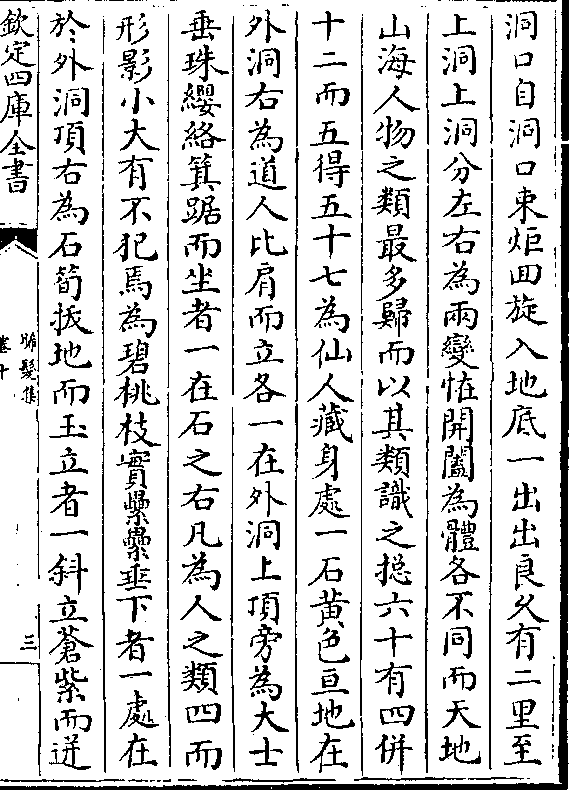 洞口自洞口束炬回旋入地底一出出良久有二里至
上洞上洞分左右為兩變恠開闔為體各不同而天地
山海人物之類最多歸而以其類識之摠六十有四併
十二而五得五十七為仙人藏身處一石黄色亘地在
外洞右為道人比肩而立各一在外洞上頂旁為大士
垂珠纓絡箕踞而坐者一在石之右凡為人之類四而
形影小大有不犯焉為碧桃枝實纍纍垂下者一處在
於外洞頂右為石筍拔地而玉立者一斜立蒼紫而迸
欽定四庫全書
晞髮集
卷十
三